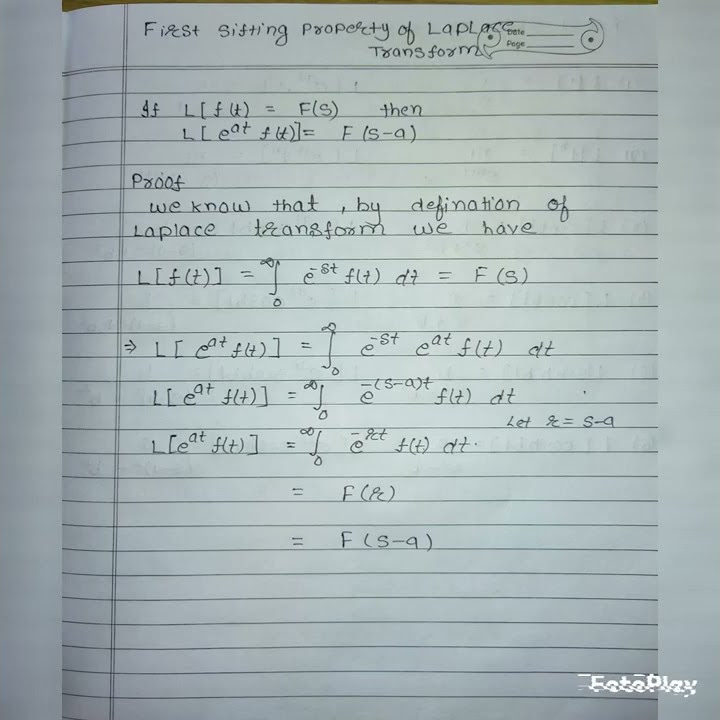 First Sifting Property of Laplace
Transform
Date
Page
If L[f(t) = F(S) then
L[e^at f(t)] = F(S-a)
Proof
we know that, by defination of
Laplace transform we have
L[f(t)] = ∫₀^∞ e^-st f(t) dt = F(S)
⇒ L[e^at f(t)] = ∫₀^∞ e^-st e^at f(t) dt
L[e^at f(t)] = ∫₀^∞ e^-(s-a)t f(t) dt
Let r = s-a
L[e^at f(t)] = ∫₀^∞ e^-rt f(t) dt.
= F(r)
= F(S-a)